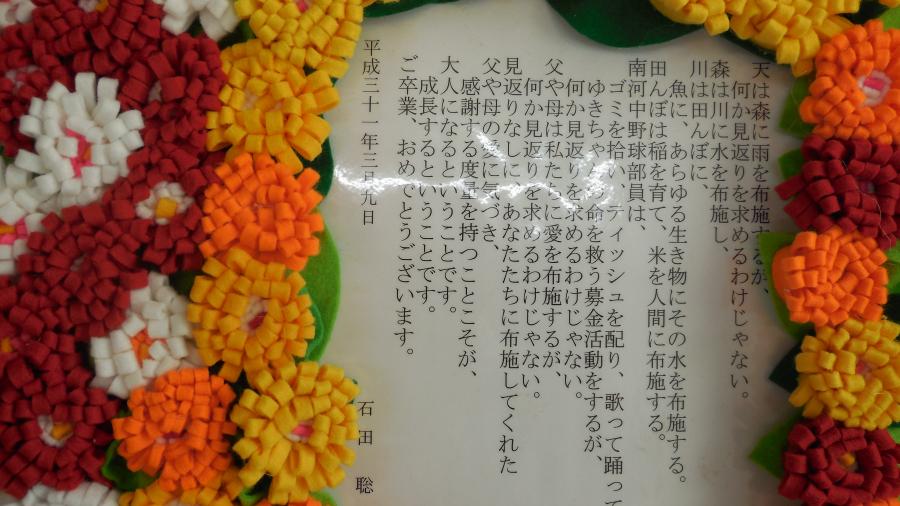 天は森に雨を布施するが、
何か見返りを求めるわけじゃない。
森は川に水を布施し、
川は田んぼに、
魚に、あらゆる生き物にその水を布施する。
田んぼは稲を育て、米を人間に布施する。
南河中野球部員は、
ゴミを拾い、ティッシュを配り、歌って踊って
ゆきちゃんの命を救う募金活動をするが、
何か見返りを求めるわけじゃない。
父や母は私たちに愛を布施するが、
何か見返りを求めるわけじゃない。
見返りなしに、あなたたちに布施してくれた
父や母の愛に気づき、
感謝する度量を持つことこそが、
大人になるということです。
成長するということです。
ご卒業、おめでとうございます。
平成三十一年三月九日
石田 聡